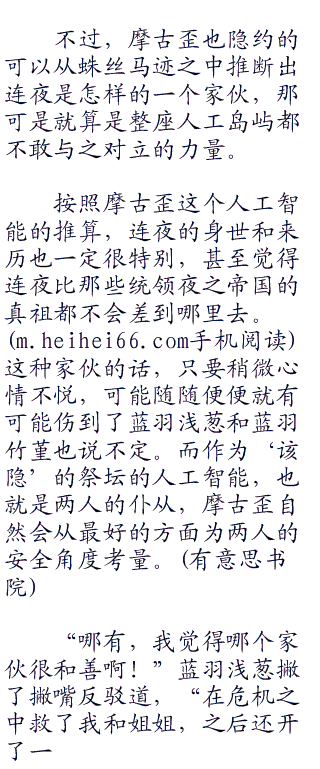 不过，摩古歪也隐约的
可以从蛛丝马迹之中推断出
连夜是怎样的一个家伙，那
可是就算是整座人工岛屿都
不敢与之对立的力量。
按照摩古歪这个人工智
能的推算，连夜的身世和来
历也一定很特别，甚至觉得
连夜比那些统领夜之帝国的
真祖都不会差到哪里去。
(m.heihei66.com手机阅读)
这种家伙的话，只要稍微心
情不悦，可能随随便便就有
可能伤到了蓝羽浅葱和蓝羽
竹堇也说不定。而作为‘该
隐’的祭坛的人工智能，也
就是两人的仆从，摩古歪自
然会从最好的方面为两人的
安全角度考量。(有意思书
院)
“哪有，我觉得哪个家
伙很和善啊！”蓝羽浅葱撇
了撇嘴反驳道，“在危机之
中救了我和姐姐，之后还开
了一